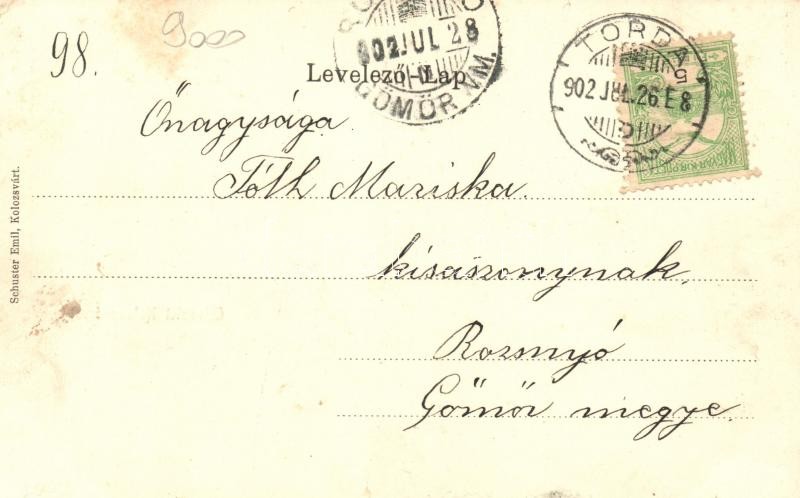 98.
9000
902 JUL 28
GÖMÖR VM.
TORDA
902 JUL. 26 E 8
Levelező-Lap
Őnagysága
Tóth Mariska.
kisaszonynak,
Rozsnyó
Gömöri megye.
Schuster Emil, Kolozsvárt.